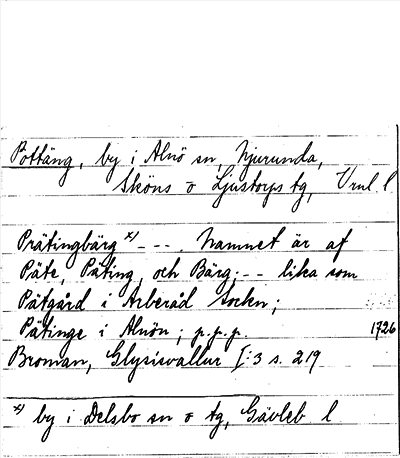 Pottäng, by i Alnö sn, Njurunda,
Sköns o Ljustorps tg, Vnl. l
Prätingbärg x) - - - . Namnet är af
Päte, Päting, och Bärg; - - lika som
Pätgård i Arberåd Sockn;
Pätinge i Alnön; p.p.p. 1726
Broman, Glysisvallur I:3 s. 219
x) by i Delsbo sn o tg, Gävleb l